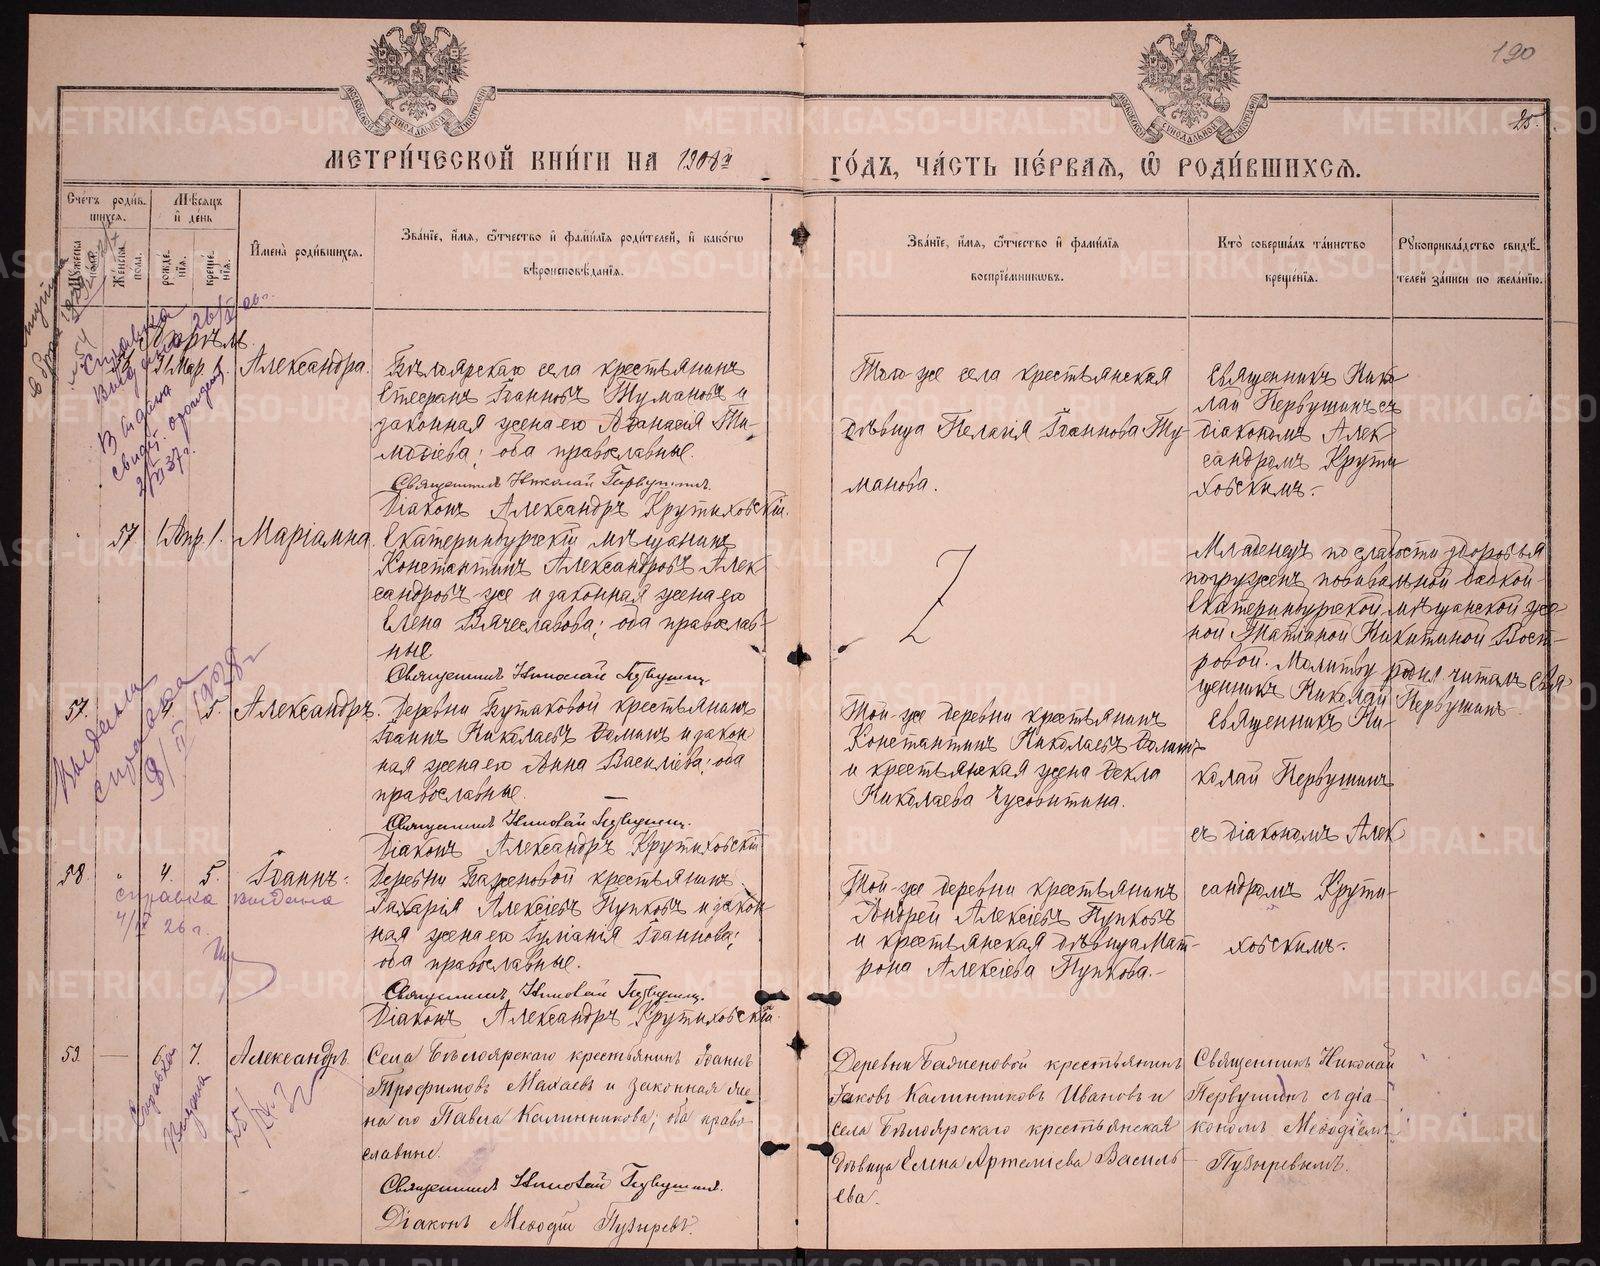 190
25.
МЕТРИ́ЧЕСКОЙ КНИ́ГИ НА 1908й ГО́ДЪ, ЧА́СТЬ ПЕ́РВАѦ, Ѿ РОДИ́ВШИХСѦ.
Сче́тъ роди́вшихсѧ.
Мѣ́сѧцъ и҆ де́нь
Мꙋ́жеска пола.
Же́нска пола.
рожде́нїѧ.
креще́нїѧ.
И҆мена̀ роди́вшихсѧ.
Зва́нїе, и҆́мѧ, ѻ҆́тчество и҆ фами́лїѧ роди́телей, и҆ како́гѡ
вѣроисповѣ́данїѧ.
Зва́нїе, и҆́мѧ, ѻ҆́тчество и҆ фами́лїѧ
воспрїе́мникѡвъ.
Кто̀ соверша́лъ та́инство
креще́нїѧ.
Рꙋкоприкла́дство свидѣ́-
телей за́писи по жела́нїю.
Апрѣль.
31 Мар. 1.
Александра.
Бѣлоярскаго села крестьянинъ
Стефанъ Іоанновъ Тумановъ и
законная жена его Аѳанасія Ти-
моѳіева; оба православные.
Священникъ Николай Первушинъ.
Діаконъ Александръ Крутиховскій.
Того же села крестьянская
дѣвица Пелагія Іоаннова Ту-
манова.
Священникъ Нико
лай Первушинъ съ
діакономъ Алек
сандромъ Крути
ховскимъ.
57 1 Апр. 1.
Маріамна.
Екатеринбургскій мѣщанинъ
Константинъ Александровъ Алек
сандровъ же и законная жена его
Елена Вячеславова; оба православ-
ные
Священникъ Николай Первушинъ
Z
Младенецъ по слабости здоровья
погруженъ повивальной бабкой
Екатеринбургской мѣщанской же-
ной Татіаной Никитиной Вост-
ровой. Молитву родил. читалъ свя
щенникъ Николай Первушинъ
57. 5.
Александръ.
Деревни Бутаковой крестьянинъ
Іоаннъ Николаевъ Ѳоминъ и закон
ная жена его Анна Василіева; оба
православные.
Священникъ Николай Первушинъ.
Діаконъ Александръ Крутиховскій
Той же деревни крестьянинъ
Константинъ Николаевъ Ѳоминъ
и крестьянская жена Ѳекла
Николаева Чусовитина.
Священникъ Ни-
колай Первушинъ
съ діакономъ Алек
сандромъ Крути-
ховскимъ.
58. " 4. 5.
Іоаннъ.
Деревни Баженовой крестьянинъ
Захарія Алексіевъ Пупковъ и закон
ная жена его Іуліанія Іоаннова;
оба православные.
Священникъ Николай Первушинъ.
Діаконъ Александръ Крутиховскій
Той же деревни крестьянинъ
Андрей Алексіевъ Пупковъ
и крестьянская дѣвица Мат-
рона Алексіева Пупкова.
59. — 6. 7.
Александръ
Села Бѣлоярскаго крестьянинъ Іоаннъ
Трофимовъ Махаевъ и законная же-
на его Павла Калинникова; оба право-
славные.
Священникъ Николай Первушинъ.
Діаконъ Меѳодій Пузыревъ.
Деревни Баженовой крестьянинъ
Іаковъ Калинниковъ Ивановъ и
села Бѣлоярскаго крестьянская
дѣвица Елена Артемиева Василь-
ева.
Священникъ Николай
Первушинъ съ діа-
кономъ Меѳодіемъ
Пузыревымъ.
Справка
Выдана 26
Выдана
свид. о рожден.
37 г.
Выдана
справка
9/II 1928 г
справка выдана
4/IX 26 г.
Справка
Выдана
METRIKI.GASO-URAL.RU